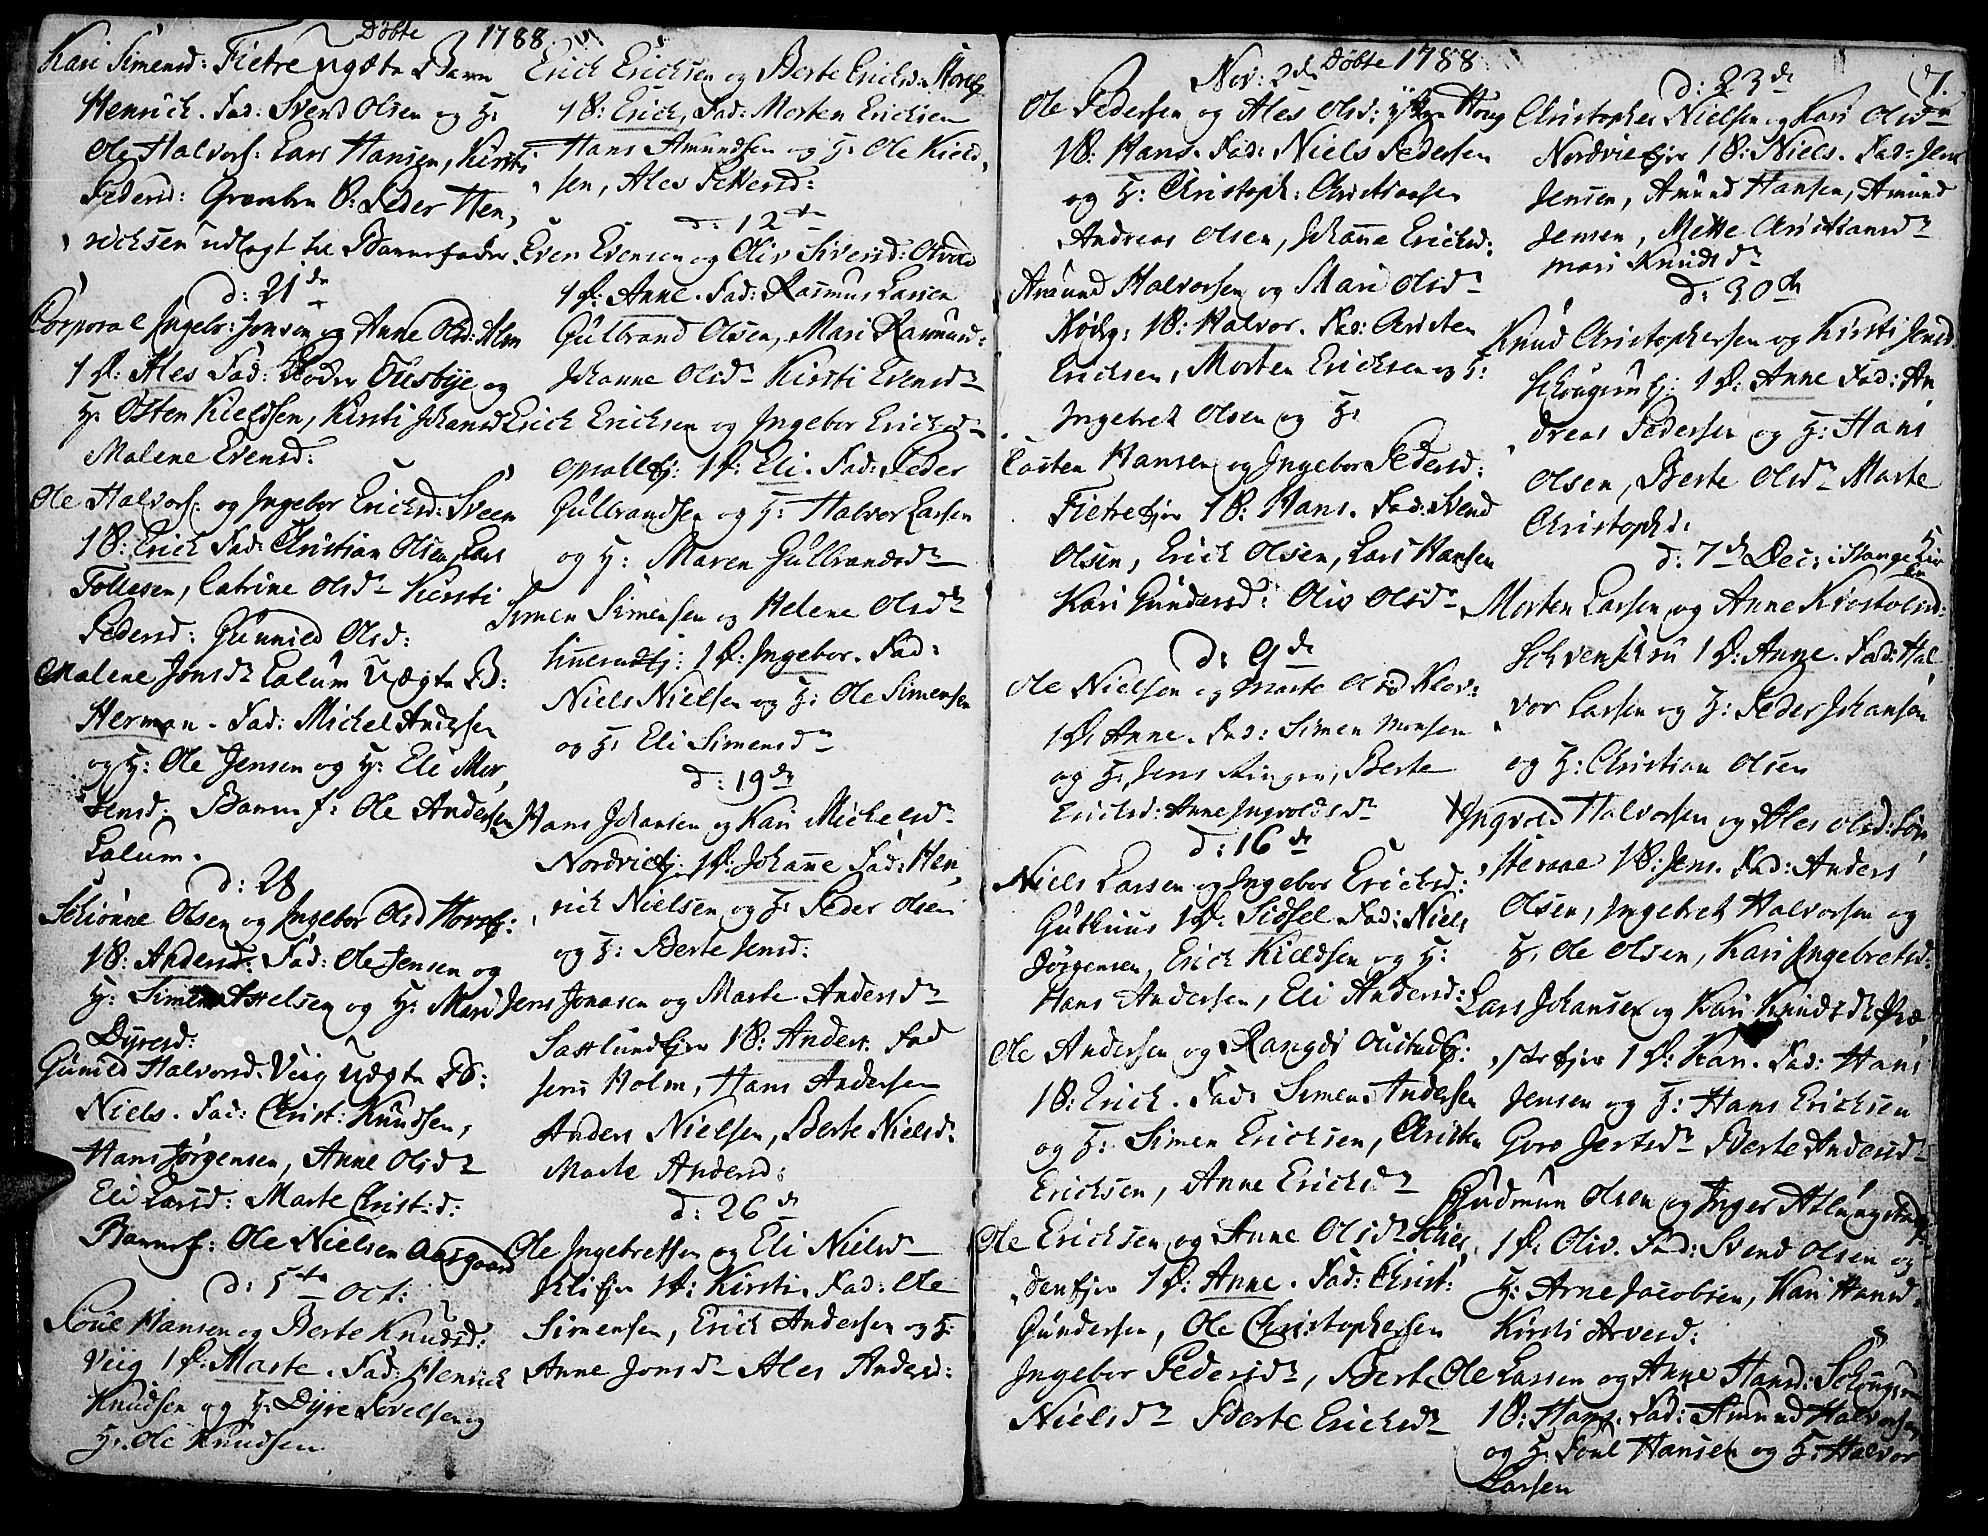 Døbte 1788
Kari Simensd: Fietre uægte Barn
Henrich. Fad: Svend Olsen og H:
Ole Halvors: Lars Hansen, Kirsti
Pedersd: Peder Hen,
richsen udlagt til Barnefader.
d: 21de
Corporal Ingebr: Jonsen og Anne Olsd: Alm
1 P: Ales Fad: Peder Tiesbÿe og
H: Østen Kieldsen, Kirsti Johansd
Malene Evensd:
Ole Halvors: og Ingebor Ericksd: Sveen
1 B: Erich Fad: Christian Olsen, Lars
Tollesen, Catrine Olsdr Kirsti
Pedersd: Gunnild Olsd:
Malene Jonsdr Lalum uægte B:
Herman. Fad: Michel Andersen
og H: Ole Jensen og H: Eli Mor,
tensd: Barnef: Ole Andersen
Lalum.
d: 28
Schiønne Olsen og Ingebor Olsd
1 B: Anders: Fad: Ole Jensen og
H: Simen Axelsen og H: Mari
Dyresd:
Gunild Halvorsd. Viig uægte B:
Niels. Fad: Christ: Knudsen,
Hans Jørgensen, Anne Olsdr
Eli Larsd: Marte Christ:d:
Barnef: Ole Nielsen Aasgaard
d: 5te Oct:
Poul Hansen og Berte Knudsd:
Viig 1 P: Marte. Fad: Henrich
Knudsen og H: Dÿre Povelsen og
H: Ole Knudsen
Erich Ericksen og Berte Ericksd:
1 B: Erich, Fad: Morten Ericksen
Hans Amundsen og H: Ole Kield,
sen, Ales Pettersd:
d: 12te
Even Evensen og Oliv Siversd:
1 P: Anne. Fad: Rasmus Larsen
Gulbrand Olsen, Mari Rasmusd:
Johanne Olsdr Kirsti Evensdr
Erich Ericksen og Ingebor Ericksdr
Opsallej: 1 P: Eli. Fad: Peder
Gulbrandsen og H: Halvor Larsen
og H: Maren Gulbrandsdr
Simen Simensen og Helene Olsdr
1 P: Ingebor. Fad:
Niels Nielsen og H: Ole Simensen
og H: Eli Simensdr
d: 19de
Hans Johansen og Kari Michelsdr
Nordviej: 1 P: Johanne Fad: Hen,
rich Nielsen og H: Peder Olsen
og H: Berte Jensd:
Jens Jonasen og Marte Andersdr
Saxlundejer 1 B: Anders. Fad
Jens Holm, Hans Andersen
Anders Nielsen, Berte Nielsdr
Marte Andersd:
d: 26de
Ole Ingebretsen og Eli Nielsdr
1 P: Kirsti. Fad: Ole
Simensen, Erich Andersen og H:
Anne Jonsdr Ales Andersd:
Nov: 2de Døbte 1788
Ole Pedersen og Ales Olsd: Houg
1 B: Hans. Fad: Niels Pedersen
og H: Christoph: Christiansen
Andreas Olsen, Johanna Ericksd:
Amund Halvorsen og Mari Olsdr
1 B: Halvor. Fad: Christen
Ericksen, Morten Ericksen og H:
Ingebret Olsen og H:
Casten Hansen og Ingebor Pedersd:
Fietreejer 1 B: Hans. Fad: Svend
Olsen, Erich Olsen, Lars Hansen
Kari Gundersd: Oliv Olsdr
d: 9de
Ole Nielsen og Marte Olsd
1 P: Anne. Fad: Simen Monsen
og H: Jens Ringen, Berte
Ericksd: Anne Ingvoldsdr
d: 16de
Niels Larsen og Ingebor Ericksd:
1 P: Sidsel Fad: Niels
Jørgensen, Erich Kieldsen og H:
Hans Andersen, Eli Andersd:
Ole Andersen og Rangdi
1 B: Erich. Fad: Simen Andersen
og H: Simen Ericksen, Christen
Ericksen, Anne Ericksdr
Ole Ericksen og Anne Olsdr
1 P: Anne. Fad: Christ:
Gundersen, Ole Christophersen
Ingebor Pedersdr, Berte
Nielsdr Berte Ericksdr
71.
d: 23de
Christopher Nielsen og Kari Olsdr
Nordvieejer 1 B: Niels. Fad: Jens
Jensen, Amund Hansen, Amund
Jensen, Mette Christiansdr
Mari Knudsdr
d: 30te
Knud Christophersen og Kirsti Jensd.
1 P: Anne Fad: An,
dreas Pedersen og H: Hans
Olsen, Berte Olsdr Marte
Christoph d:
d: 7de Dec: i Stange Kir
ke
Morten Larsen og Anne
1 P: Anne. Fad: Hal,
vor Larsen og H: Peder Johansen
og H: Christian Olsen
Ingvold Halvorsen og Ales Olsd: Søn,
1 B: Jens. Fad: Anders
Olsen, Ingebret Halvorsen og
H: Ole Olsen, Kari Ingebretsd:
Lars Johansen og Kari Knudsdr Præ
steejer 1 P: Kari. Fad: Hans
Jensen og H: Hans Ericksen
Goro Jertsdr Berte Andersdr
Gudmun Olsen og Inger
1 P: Oliv. Fad: Svend Olsen og
H: Arne Jacobsen, Kari Hansd
Kirsti Arvesd:
Ole Larsen og Anne Hansd:
1 B: Hans. Fad: Amund Halvorsen
og H: Poul Hansen og H: Halvor
Larsen